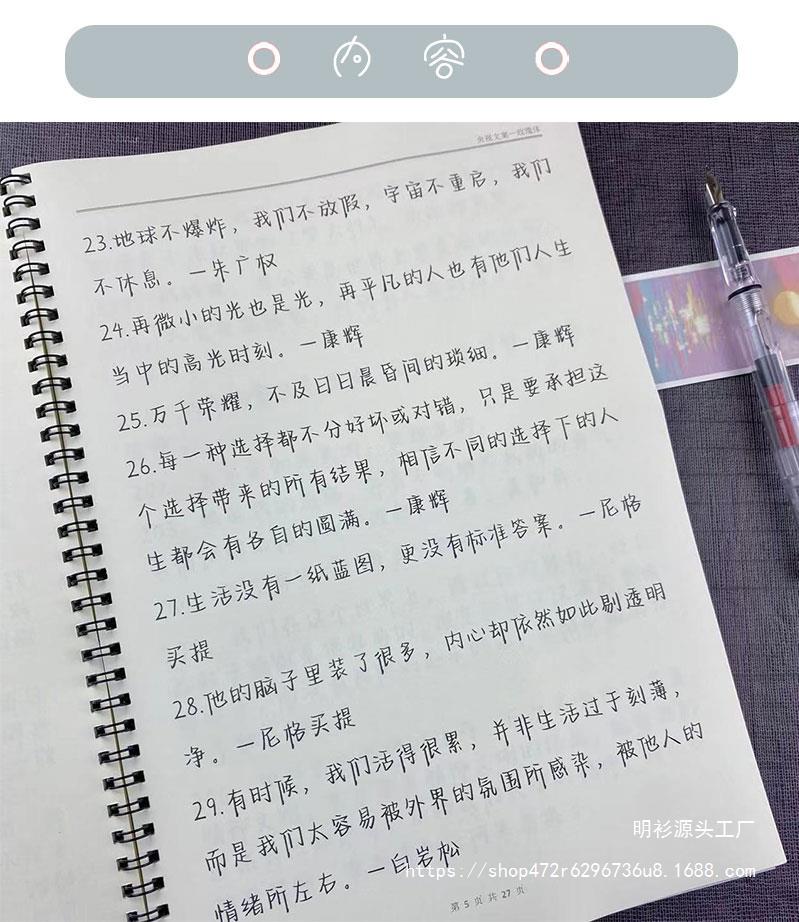 内容
央视文案一纹漪体
23.地球不爆炸，我们不放假，宇宙不重启，我们
不休息。一朱广权
24.再微小的光也是光，再平凡的人也有他们人生
当中的高光时刻。一康辉
25.万千荣耀，不及日日晨昏间的琐细。一康辉
26.每一种选择都不分好坏或对错，只是要承担这
个选择带来的所有结果，相信不同的选择下的人
生都会有各自的圆满。一康辉
27.生活没有一纸蓝图，更没有标准答案。一尼格
买提
28.他的脑子里装了很多，内心却依然如此剔透明
净。一尼格买提
29.有时候，我们活得很累，并非生活过于刻薄，
而是我们太容易被外界的氛围所感染，被他人的
情绪所左右。一白岩松
明衫源头工厂
https://shop472r6296736u8.1688.com
第 5 页 共 27 页